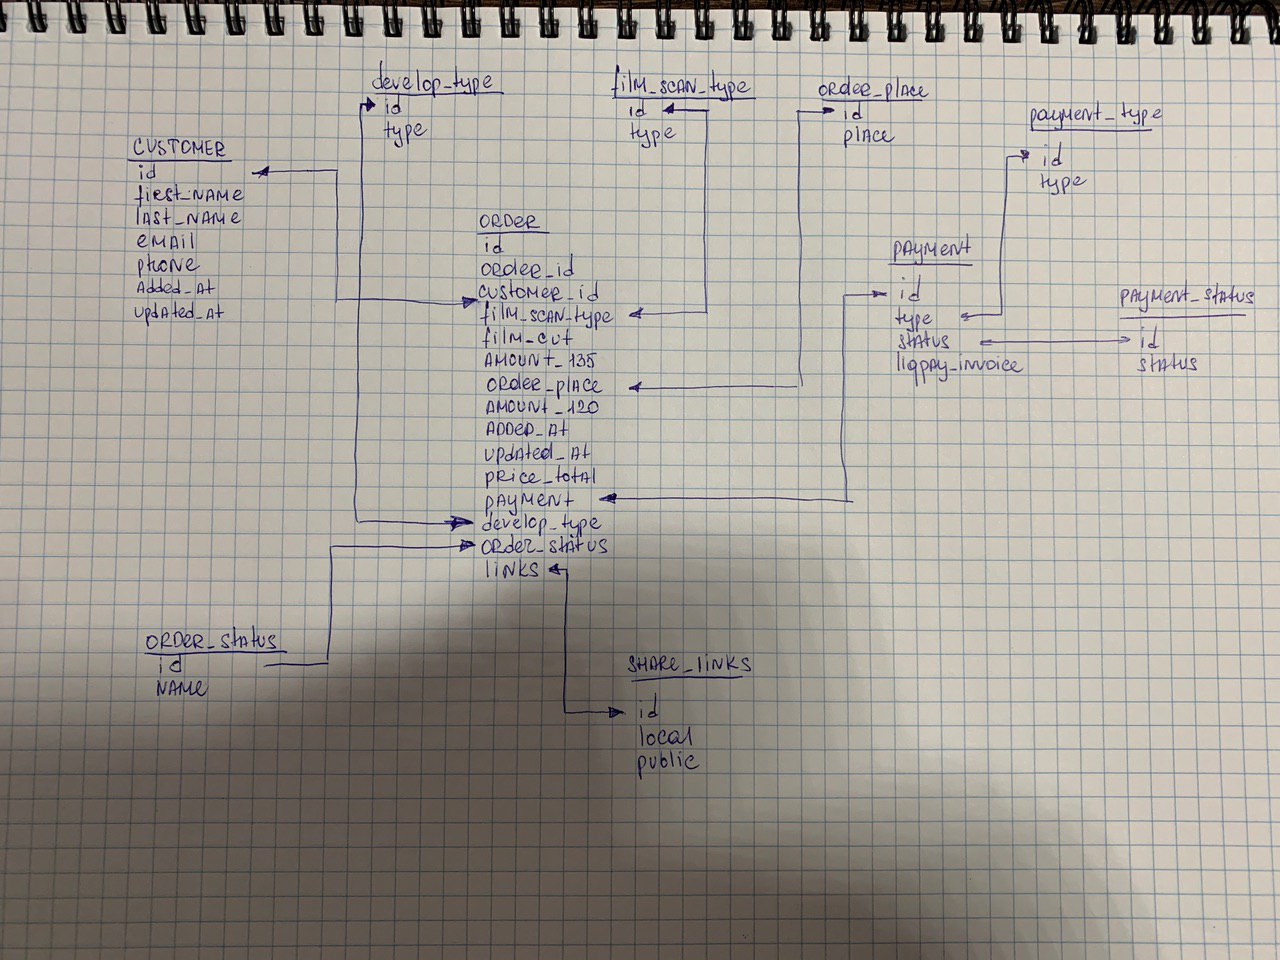 develop_type
id
type
film_scan_type
id
type
order_place
id
place
payment_type
id
type
CUSTOMER
id
first_name
last_name
email
phone
Added_At
updated_At
ORDER
id
order_id
customer_id
film_scan_type
film_cut
amount_135
order_place
amount_120
added_at
updated_at
price_total
payment
develop_type
order_status
links
payment
id
type
status
liqpay_invoice
payment_status
id
status
order_status
id
name
share_links
id
local
public